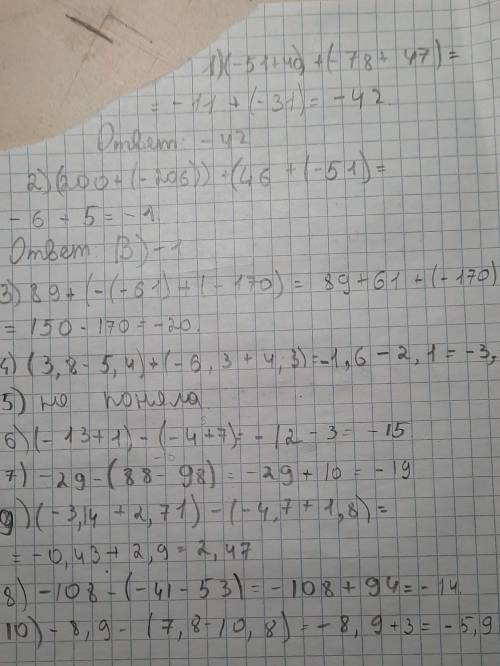 1)(-51+40)+(-78+47)=
= -11 + (-31) = -42.
Ответ: -42
2)(200+(-206))+(46+(-51)=
-6+5=-1
Ответ: В)-1
3) 89+(-(-61)+(-170) = 89+61+(-170)
= 150-170=-20.
4) (3,8-5,4)+(-6,3+4,3)=-1,6-2,1=-3,
5) не поняла
6)(-13+1)-(-4+7)=-12-3=-15
7) -29-(88-98)=-29+10=-19
9)(-3,14+2,71)-(-4,7+1,8)=
= -0,43+2,9=2,47
8) -108-(-41-53)=-108+94=-14
10)-8,9-(7,8-10,8)=-8,9+3=-5,9